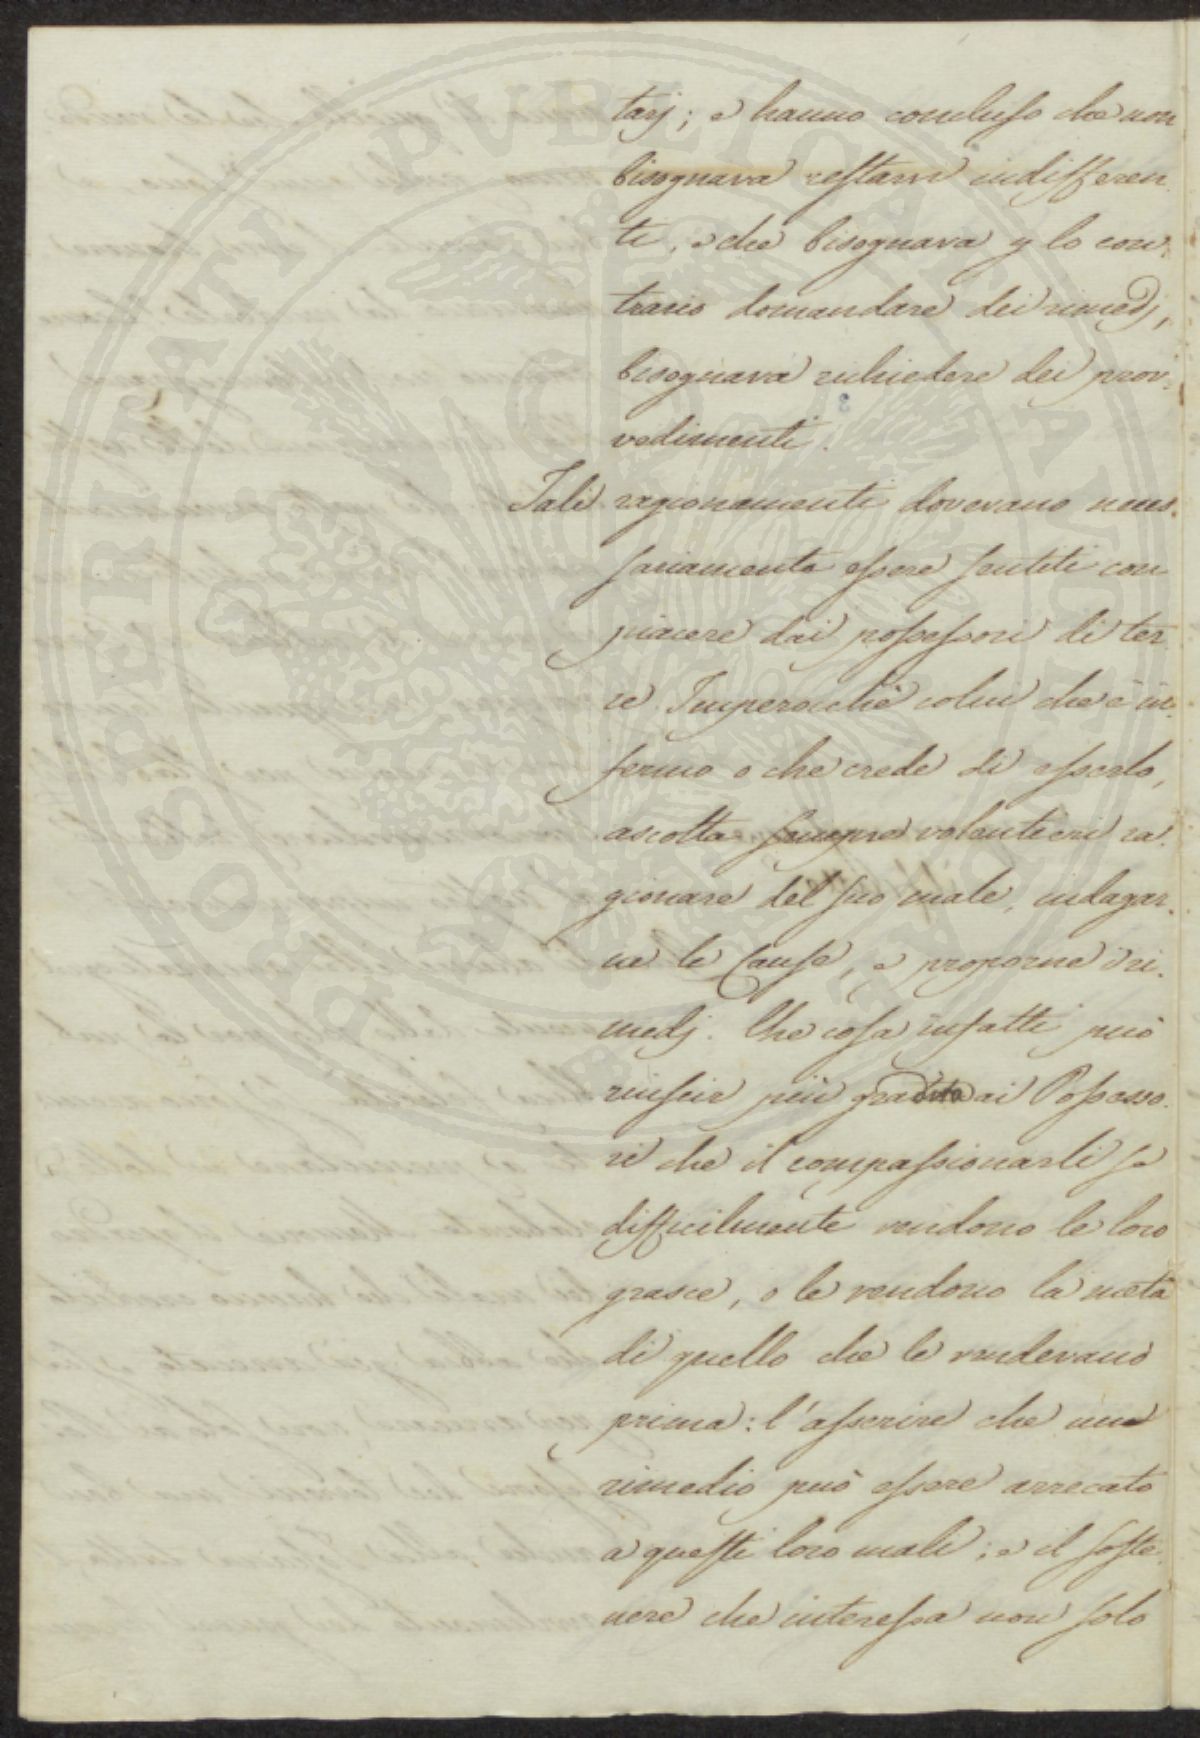 tarj; e hanno concluso che non
bisognava restarvi indifferen
ti, e che bisognava p lo con-
trario domandare dei rimedj,
bisognava richiedere dei prov-
vedimenti.
Tali ragionamenti dovevano neces-
sariamente essere sentiti con
piacere dai possessori di ter
re Imperocchè colui che è in-
fermo o che crede di esserlo,
ascolta sempre volentieri ra-
gionare del suo male, indagar-
ne le Cause, e proporne i ri-
medj. Che cosa infatti può
riuscir più gradito ai Possesso-
ri che il compassionarli se
difficilmente vendono le loro
grasce, o le vendono la metà
di quello che le vendevano
prima: l'asserire che un
rimedio può essere arrecato
a questi loro mali; e il soste-
nere che interessa non solo
PROSPERITATI PVBLICAE AVGENDAE